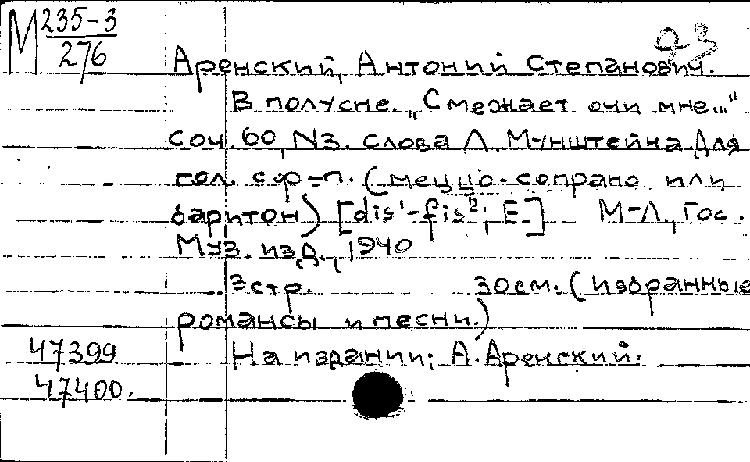 М 235-3
276
93
Аренский, Антоний Степанович.
В полусне. „Смежает очи мне..."
соч. 60, N3. слова Л. Мунштейна Для
гол. с ф-п. (меццо-сопрано или
баритон) [dis¹-fis²; E.] М-Л, Гос.
Муз. изд., 1940
3 стр. 30 см. (избранные
романсы и песни.)
47399 На издании: А. Аренский.
47400.